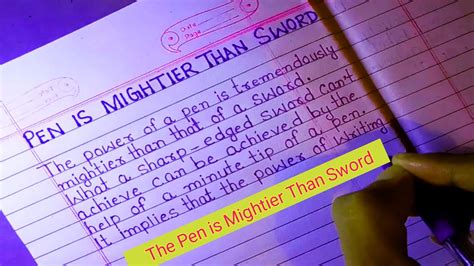 Date
Page
PEN IS MIGHTIER THAN SWORD
The power of a pen is tremendously
mightier than that of a sward.
What a sharp-edged sword can't
achieve can be achieved by the
help of a minute tip of a pen.
It implies that the power of writing
The Pen is Mightier Than Sword